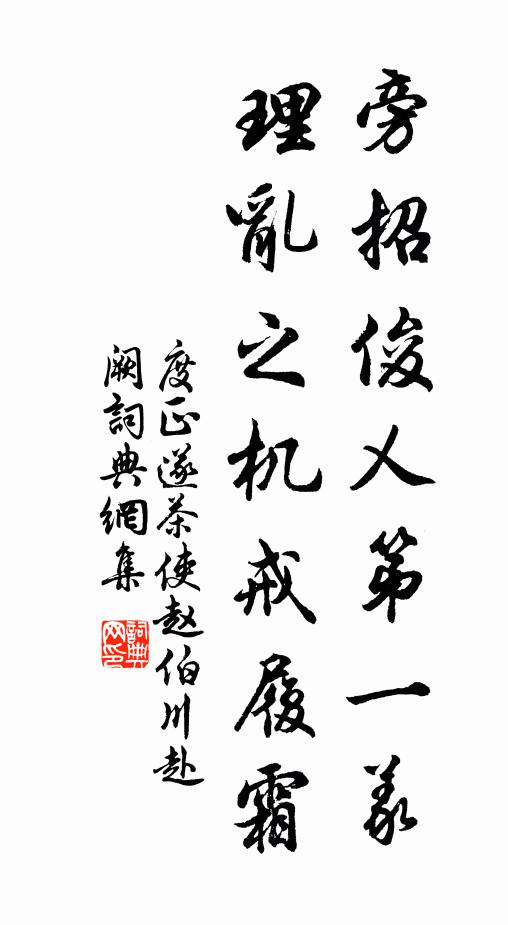 旁招俊乂第一義
理亂之机戒履霜
度正送茶使赵伯川赴
阙詞典網集
詞典網印